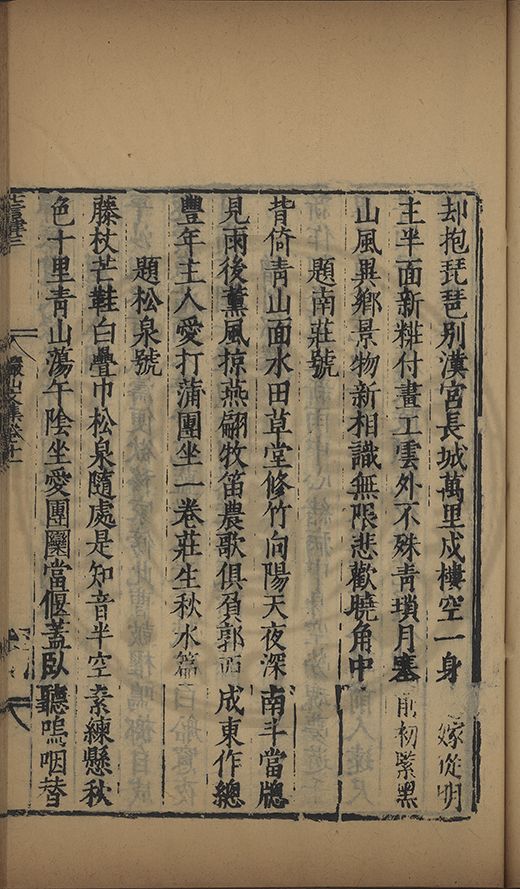 却抱琵琶別漢宮長城萬里戍樓空一身嫁從明
主半面新粧付畫工雲外不殊青瑣月塞前初紫黑
山風異鄉景物新相識無限悲歡曉角中
題南莊號
背倚青山面水田草堂修竹向陽天夜深南斗當牕
見雨後薰風掠燕翩牧笛農歌俱負郭西成東作總
豐年主人愛打蒲團坐一卷莊生秋水篇
題松泉號
藤杖芒鞋白疊巾松泉隨處是知音半空素練懸秋
色十里青山蕩午陰坐愛團欒當偃蓋臥聽嗚咽替